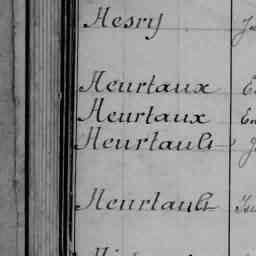 Hesry
Heurtaux
Heurtaux En
Heurtault
Heurtault